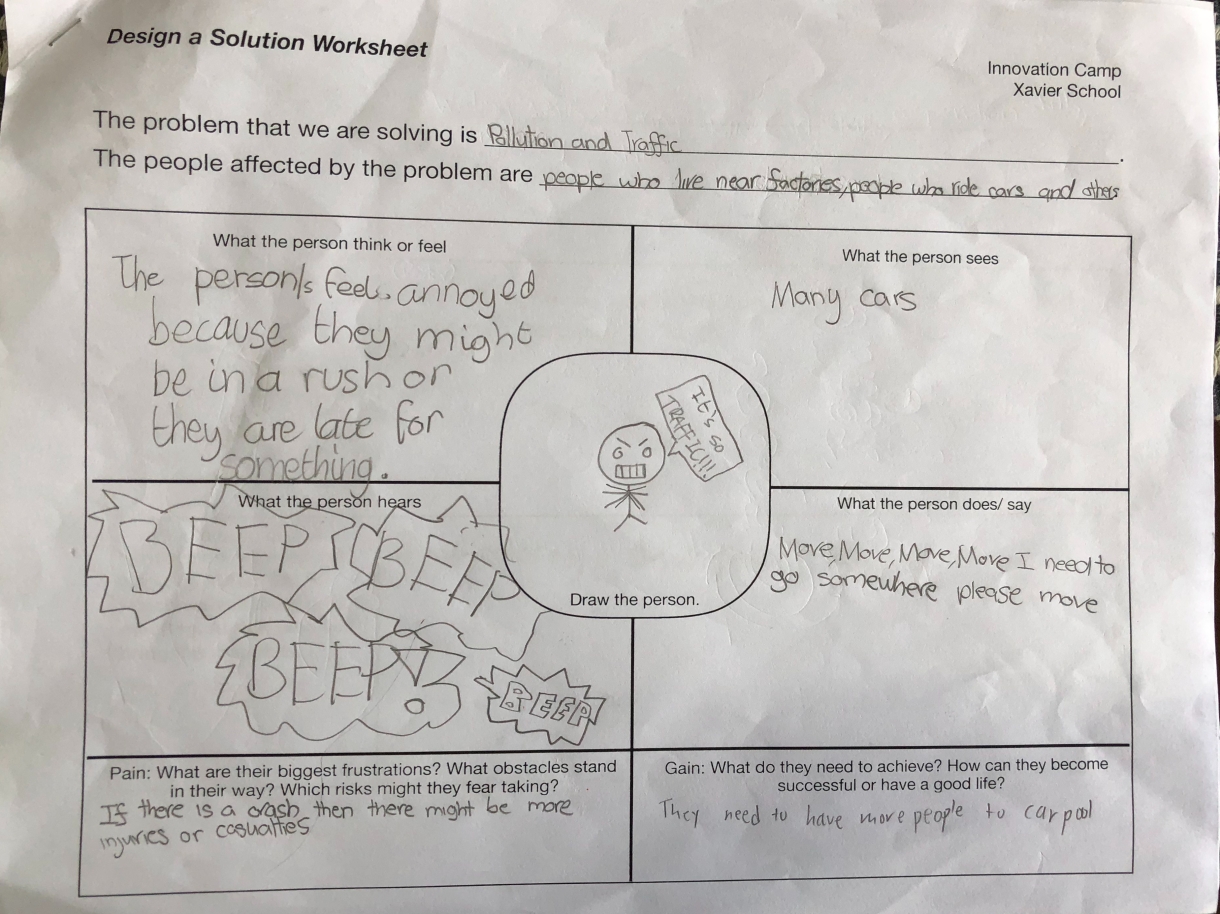 Design a Solution Worksheet
Innovation Camp
Xavier School
The problem that we are solving is Pollution and Traffic.
The people affected by the problem are people who live near factories, people who ride cars and others
What the person think or feel
The person/s feel. annoyed
because they might
be in a rush or
they are late for
something.
What the person sees
Many cars
IT'S SO
TRAFFIC!!!
Draw the person.
What the person hears
BEEP! BEEP
BEEP! BEEP
What the person does/ say
Move, Move, Move, Move I need to
go somewhere please move
Pain: What are their biggest frustrations? What obstacles stand
in their way? Which risks might they fear taking?
If there is a crash then there might be more
injuries or casualties
Gain: What do they need to achieve? How can they become
successful or have a good life?
They need to have more people to carpool